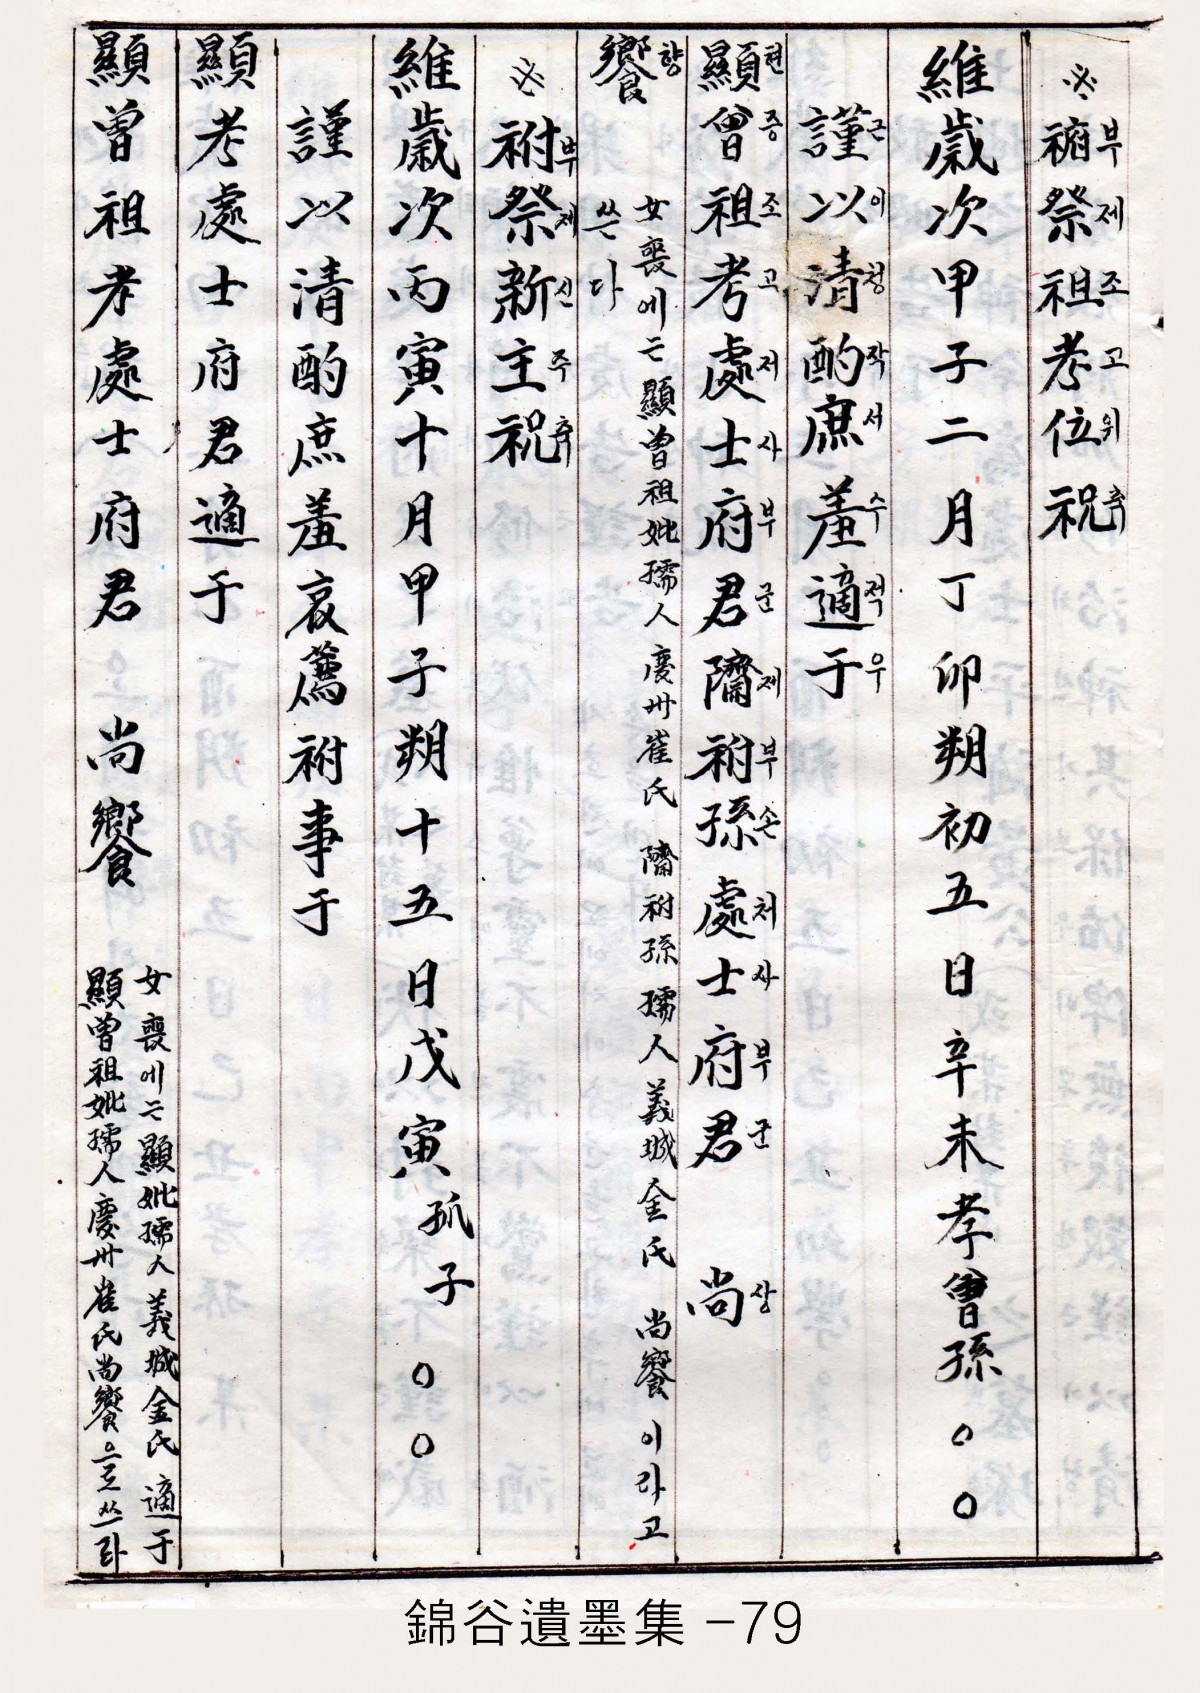 ※ 祔부祭제祖조考고位위祝축
維歲次甲子二月丁卯朔初五日辛未孝曾孫 ○○
謹근以이清청酌작庶서羞수適적于우
顯현曾증祖조考고處저士사府부君군隮제祔부孫손處처士사府부君군 尚상
饗향 女喪에는 顯曾祖妣孺人慶州崔氏 隮祔孫孺人義城金氏 尚饗 이라고
쓴다
※ 祔부祭제新신主주祝축
維歲次丙寅十月甲子朔十五日戊寅孤子 ○○
謹以清酌庶羞哀薦祔事于
顯考處士府君適于
顯曾祖考處士府君 尚饗 女喪에는 顯妣孺人義城金氏適于
顯曾祖妣孺人慶州崔氏尚饗으로쓰라
錦谷遺墨集 -79